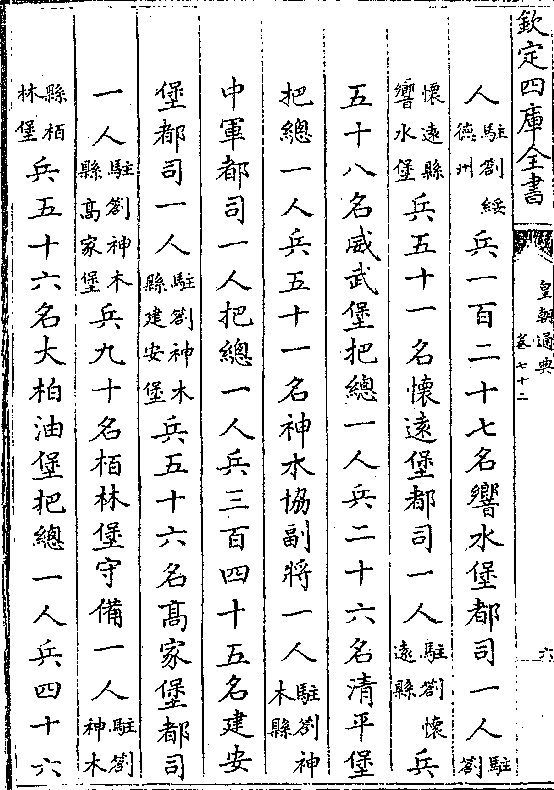 欽定四庫全書
皇朝通典
卷七十二
六
人駐劄綏德州兵一百二十七名響水堡都司一人駐劄
懷遠縣響水堡兵五十一名懷遠堡都司一人駐劄懷遠縣兵
五十八名威武堡把總一人兵二十六名清平堡
把總一人兵五十一名神木協副將一人駐劄神木縣
中軍都司一人把總一人兵三百四十五名建安
堡都司一人駐劄神木縣建安堡兵五十六名高家堡都司
一人駐劄神木縣高家堡兵九十名栢林堡守備一人駐劄神木
縣栢林堡兵五十六名大柏油堡把總一人兵四十六